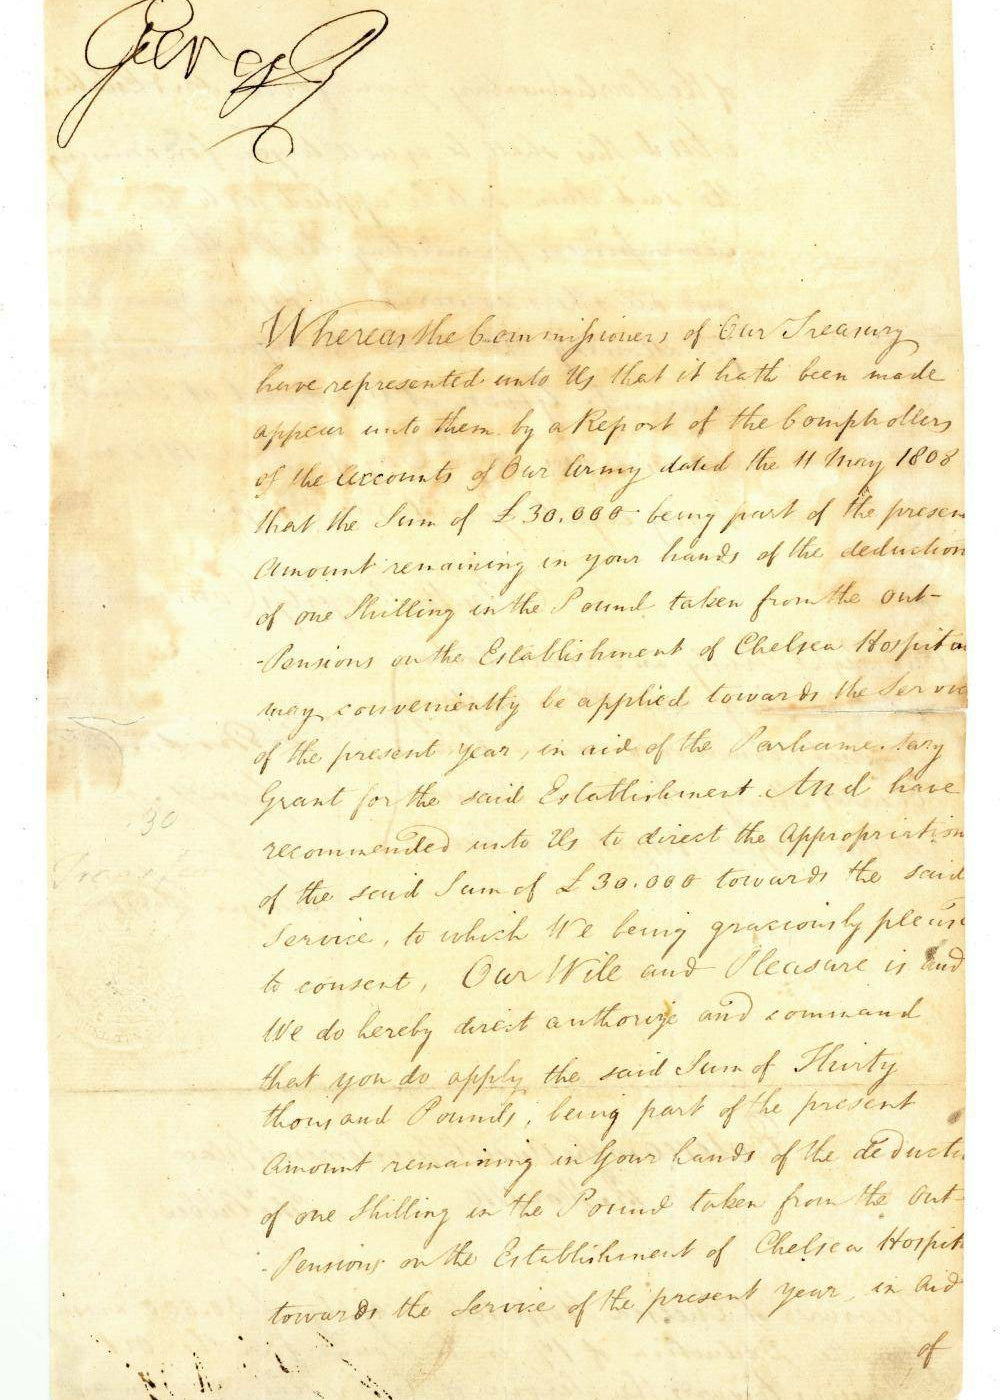 George R
Whereas the Commissioners of Our Treasury
have represented unto Us that it hath been made
appear unto them by a Report of the Comptrollers
of the Accounts of Our Army dated the 11 May 1808
that the Sum of £30.000 being part of the presen
Amount remaining in your hands of the deduction
of one Shilling in the Pound taken from the out-
-Pensions on the Establishment of Chelsea Hospital
may conveniently be applied towards the Servic
of the present year, in aid of the Parliamentary
Grant for the said Establishment. And have
recommended unto Us to direct the Appropriation
of the said Sum of £30.000 towards the said
Service, to which We being graciously please
to consent, Our Will and Pleasure is and
We do hereby direct authorize and command
that you do apply the said Sum of Thirty
thousand Pounds, being part of the present
Amount remaining in your hands of the deducti
of one Shilling in the Pound taken from the Out-
-Pensions on the Establishment of Chelsea Hospit
towards the Service of the present year, in aid
of
30